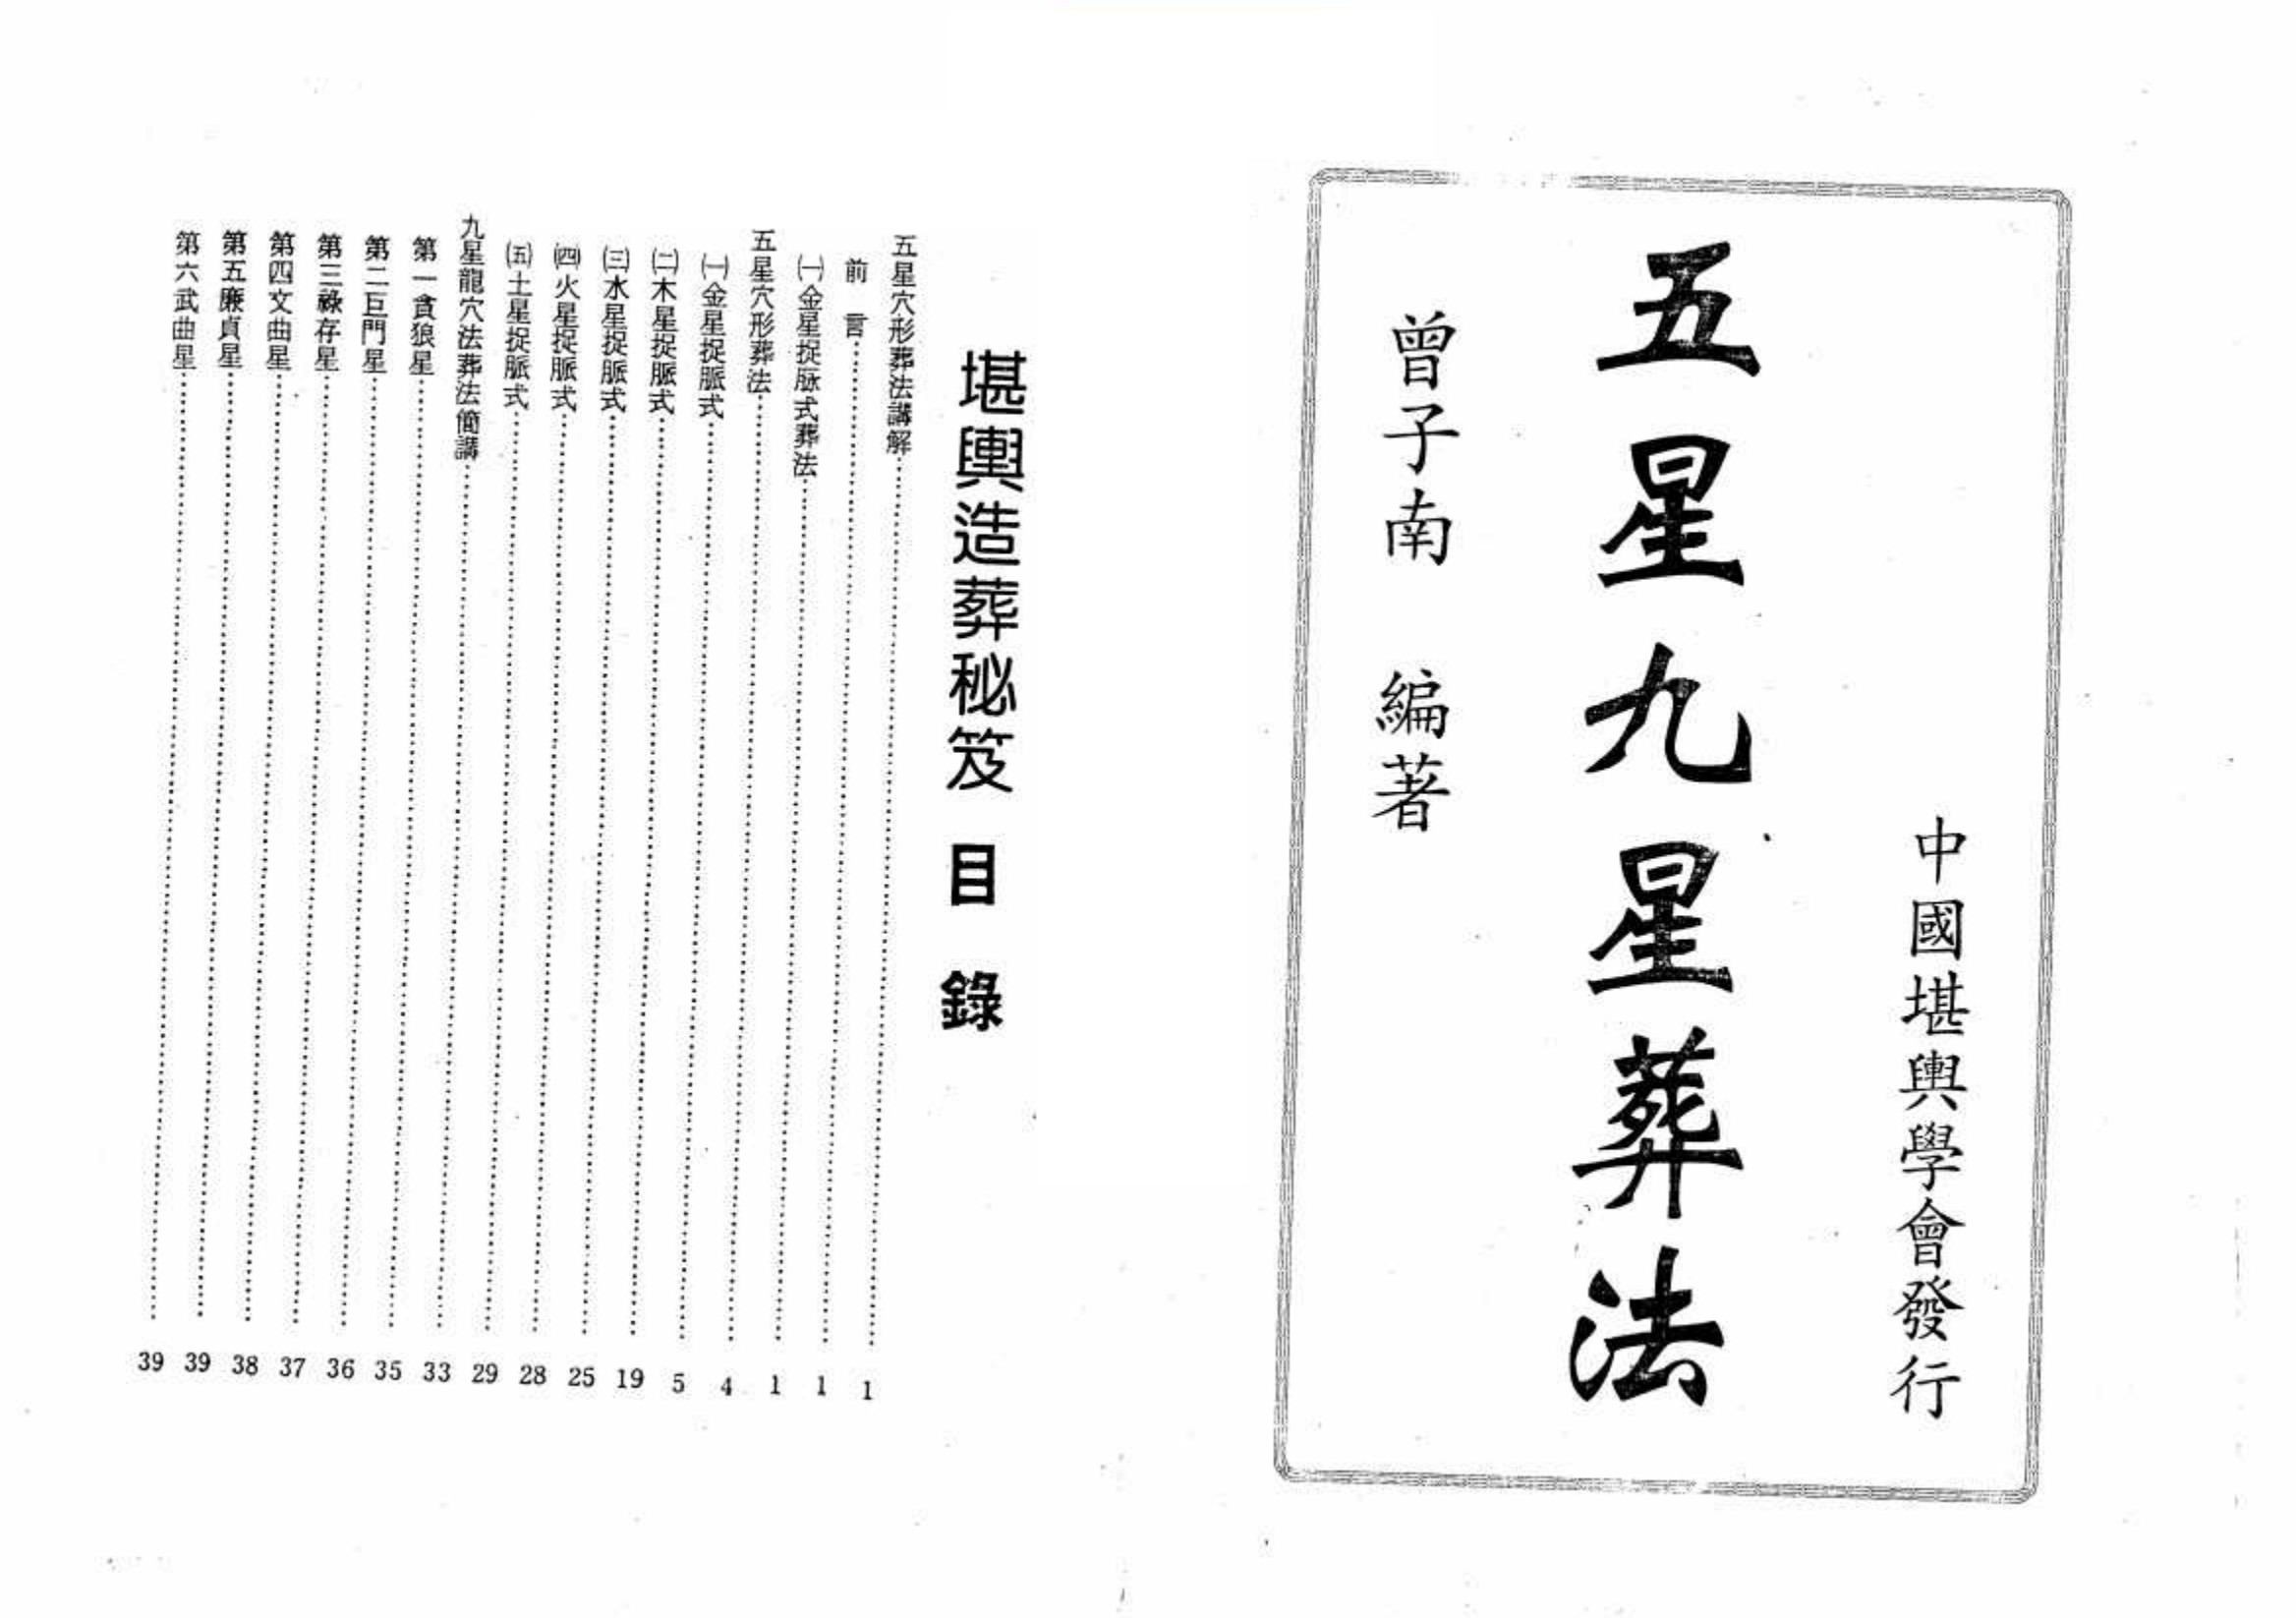 中國堪輿學會發行
五星九星葬法
曾子南 編著
堪輿造葬秘笈 目錄
五星穴形葬法講解 1
前言 1
㈠金星捉脉式葬法 1
五星穴形葬法 4
㈠金星捉脈式 5
㈡木星捉脈式 19
㈢水星捉脈式 25
㈣火星捉脈式 28
㈤土星捉脈式 29
九星龍穴法葬法簡講 33
第一貪狼星 35
第二巨門星 36
第三祿存星 37
第四文曲星 38
第五廉貞星 39
第六武曲星 39